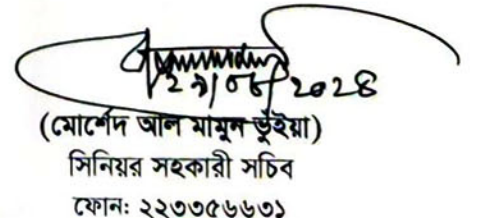 ২০২৪
(মোর্শেদ আল মামুন ভুঁইয়া)
সিনিয়র সহকারী সচিব
ফোন: ২২৩৩৫৬৬৩১